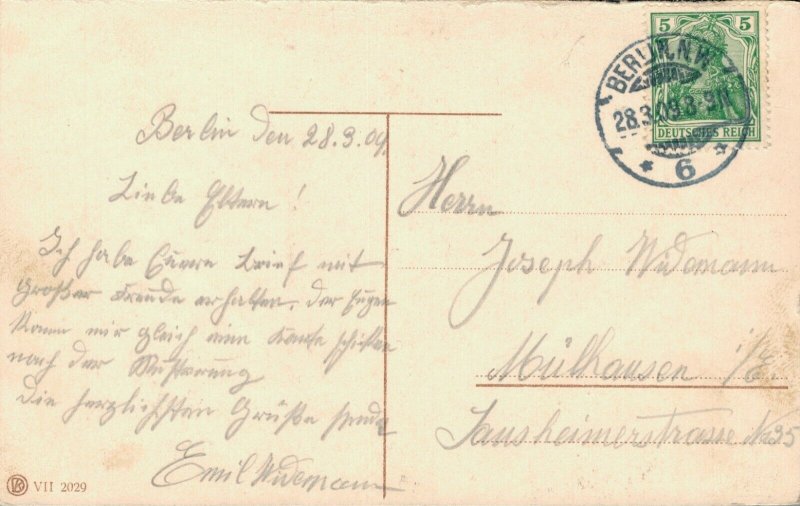 Berlin den 28.3.09.
Liebe Eltern!
Ich habe Euren Brief mit
großer Freude erhalten. der Eugen
kann mir gleich eine Karte schicken
nach der Musterung
die herzlichsten Grüße sendet
Emil Widemann
VII 2029
5 5
DEUTSCHES REICH
BERLIN, N.W.
28.3.09.8-9N
* 6 *
Herrn
Joseph Widemann
Mülhausen i/E.
Sausheimerstrasse No 35